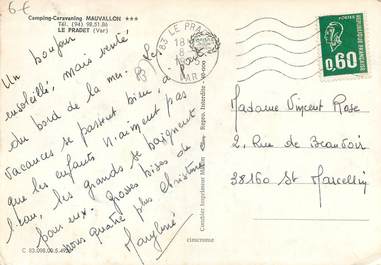 6€
Camping-Caravaning MAUVALLON ★★★
Tél. (94) 98.51.81
LE PRADET (Var)
Un bonjour
ensoleillé, mais venté
du bord de la mer. Les
vacances se passent bien, à part
que les enfants n'aiment pas
l'eau, les grands se baignent
pour eux. Grosses bises de
nous quatre plus Christine
Maryline
C 83.098.00.5.
Combier Imprimeur Mâcon
Repro. Interdite
CIMCHROME
83 LE PRADET
18
VAR
POSTES
0,60
Madame Vincent Rose
2, Rue de Beauvoir
38160 St Marcellin